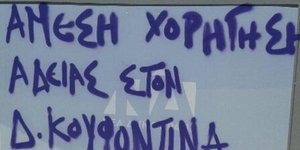 ΑΜΕΣΗ ΧΟΡΗΓΗΣΗ
ΑΔΕΙΑΣ ΣΤΟΝ
Δ. ΚΟΥΦΟΝΤΙΝΑ